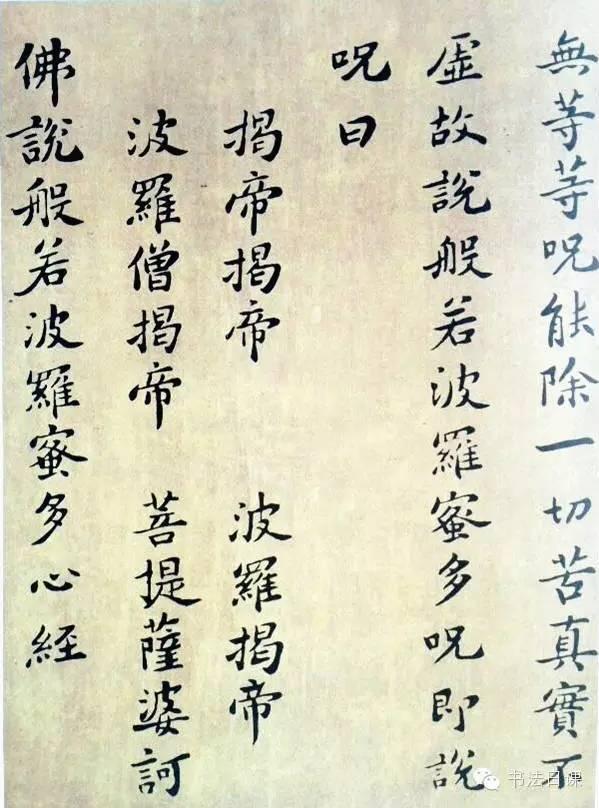 無等等呪能除一切苦真實不
虛故說般若波羅蜜多呪即說
呪曰
揭帝揭帝 波羅揭帝
波羅僧揭帝 菩提薩婆訶
佛說般若波羅蜜多心経
书法日课